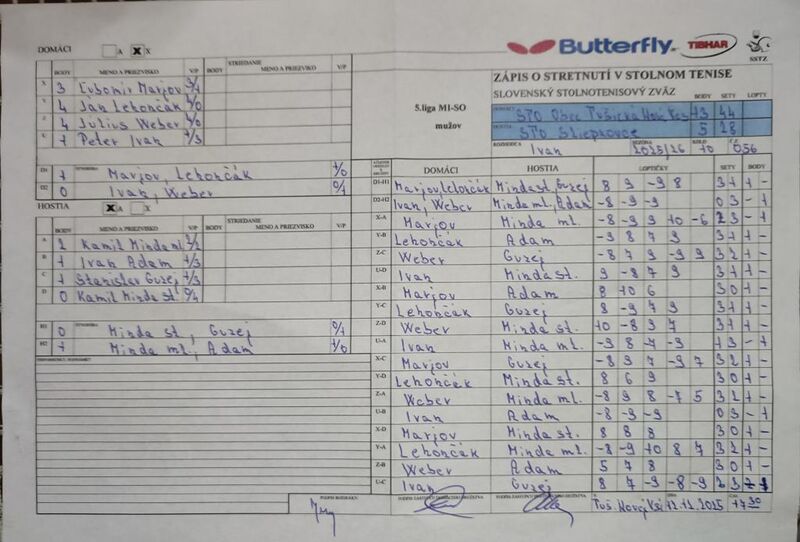 DOMÁCI A X X
Butterfly TIBHAR SSTZ
ZÁPIS O STRETNUTÍ V STOLNOM TENISE
SLOVENSKÝ STOLNOTENISOVÝ ZVÄZ BODY SETY LOPTY
5.liga MI-SO
mužov
DOMÁCI STO Obec Pušická Nová Ves 13 44
HOSTIA STO Sliepkovce 5 28
ROZHODCA Ivan SEZÓNA 2025/26 KOLO 10 Č.Z. 056
BODY MENO A PRIEZVISKO V/P BODY STRIEDANIE MENO A PRIEZVISKO V/P
X 3 Ľubomir Marjov 3/1
Y 4 Ján Lehončák 4/0
Z 4 Július Weber 4/0
U 1 Peter Ivan 1/3
D1 1 Marjov, Lehončák 1/0
D2 0 Ivan, Weber 0/1
HOSTIA X A X
BODY MENO A PRIEZVISKO V/P BODY STRIEDANIE MENO A PRIEZVISKO V/P
A 2 Kamil Minda ml. 2/2
B 1 Ivan Adam 1/3
C 1 Stanislav Guzej 1/3
D 0 Kamil Minda st. 0/4
H1 0 Minda st., Guzej 0/1
H2 1 Minda ml., Adam 1/0
DOMÁCI HOSTIA LOPTIČKY SETY BODY
D1-H1 Marjov, Lehončák Minda st., Guzej 8 9 -9 8 3 1 1 -
D2-H2 Ivan, Weber Minda ml., Adam -8 -9 -9 0 3 - 1
X-A Marjov Minda ml. -8 -9 9 10 -6 2 3 - 1
Y-B Lehončák Adam -9 8 7 9 3 1 1 -
Z-C Weber Guzej -8 7 9 -9 9 3 2 1 -
U-D Ivan Minda st. 9 -8 7 9 3 1 1 -
X-B Marjov Adam 8 10 6 3 0 1 -
Y-C Lehončák Guzej 8 -9 7 9 3 1 1 -
Z-D Weber Minda st. 10 -8 9 7 3 1 1 -
U-A Ivan Minda ml. -9 8 -7 -9 1 3 - 1
X-C Marjov Guzej -8 9 7 -9 7 3 2 1 -
Y-D Lehončák Minda st. 8 6 9 3 0 1 -
Z-A Weber Minda ml. -8 9 8 -7 5 3 2 1 -
U-B Ivan Adam -8 -9 -9 0 3 - 1
X-D Marjov Minda st. 8 8 8 3 0 1 -
Y-A Lehončák Minda ml. -8 -9 10 8 7 3 2 1 -
Z-B Weber Adam 5 7 8 3 0 1 -
U-C Ivan Guzej 8 7 -9 -8 -9 2 3 - 1
PODPIS ROZHODCU
Puš. Nová Ves 12.12.2025 17 30